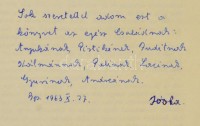 Sok szeretettel adom ezt a
könyvet az egész Családnak:
Anyukának Pistikének, Juditnak
Kálmánnak, Palinak Lacinak
Gyurinak, Andreának.
Bp. 1963. X. 27.
Jóska